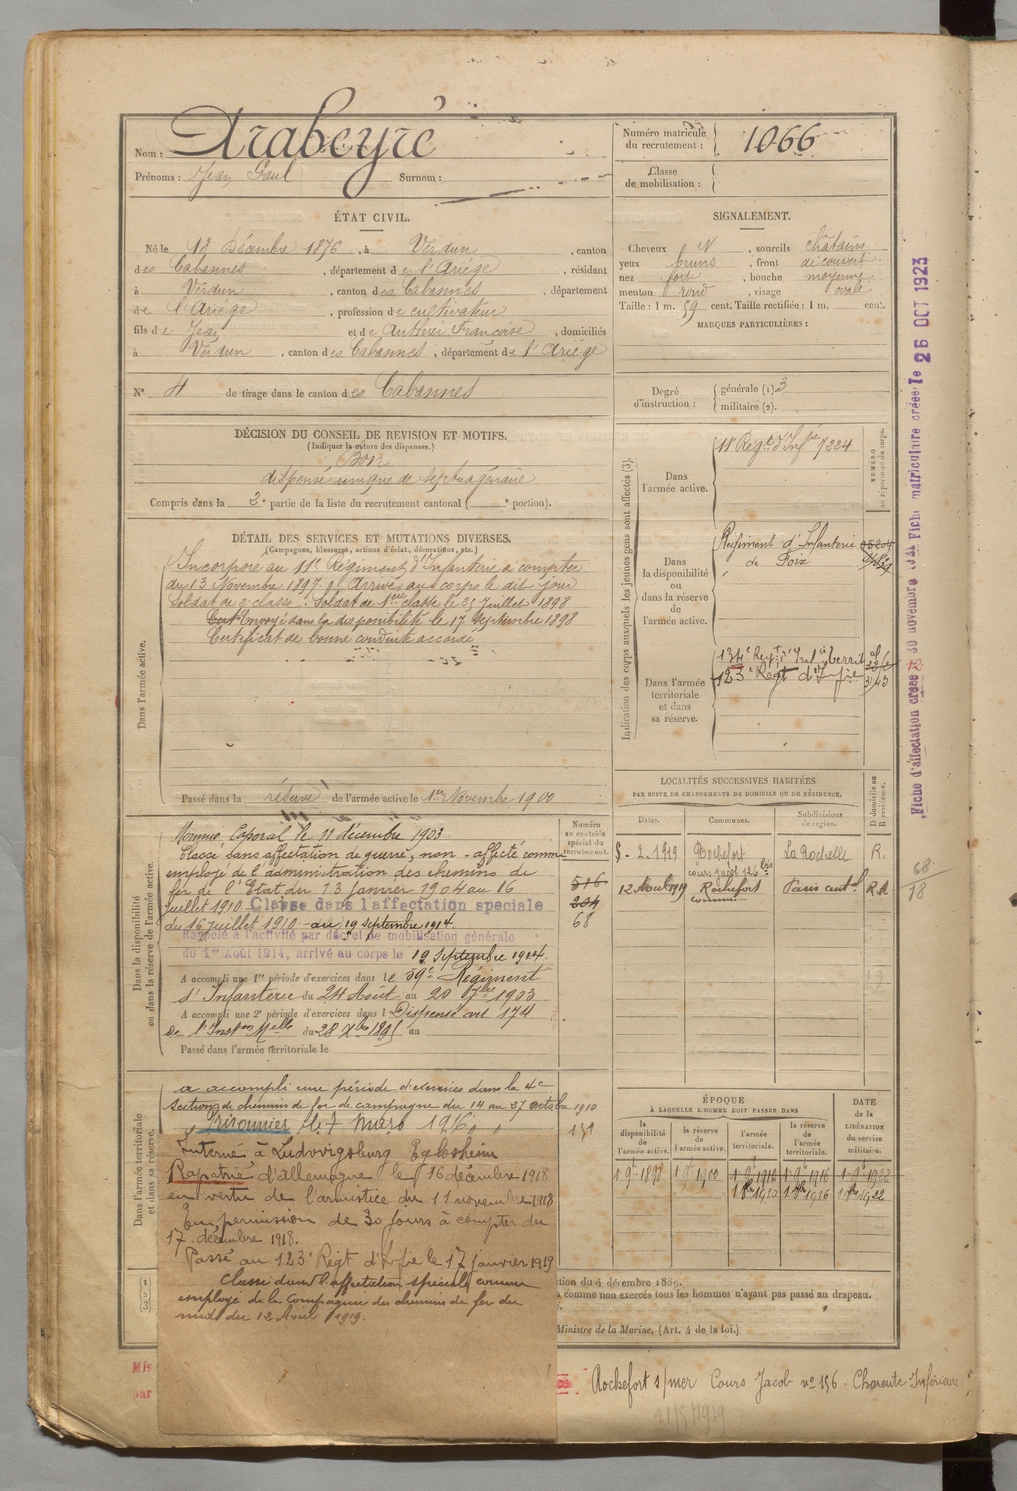 Nom : Arabeyre
Prénoms : Jean Paul Surnom :
Numéro matricule du recrutement : 1066
Classe de mobilisation :
ÉTAT CIVIL.
Né le 18 Décembre 1876, à Verdun, canton
des Cabannes, département de l'Ariége, résidant
à Verdun, canton des Cabannes, département
de l'Ariége, profession de cultivateur
fils de Jean et de Authier Françoise, domiciliés
à Verdun, canton des Cabannes, département de l'Ariége
N° 4 de tirage dans le canton des Cabannes
SIGNALEMENT.
Cheveux N, sourcils châtains
yeux bruns, front découvert
nez fort, bouche moyenne
menton rond, visage ovale
Taille : 1 m. 59 cent. Taille rectifiée : 1 m. cent.
MARQUES PARTICULIÈRES :
Degré d'instruction : générale (1). 3
militaire (2).
DÉCISION DU CONSEIL DE REVISION ET MOTIFS.
(Indiquer la nature des dispenses.)
Bon
dispensé unique de septuagénaire
Compris dans la 2e partie de la liste du recrutement cantonal ( e portion).
DÉTAIL DES SERVICES ET MUTATIONS DIVERSES.
(Campagnes, blessures, actions d'éclat, décorations, etc.)
Dans l'armée active.
Incorporé au 11e Régiment d'Infanterie à compter
du 13 Novembre 1897. Arrivé au corps le dit jour
soldat de 2e classe. Soldat de 1ere classe le 25 Juillet 1898
Envoyé dans la disponibilité le 17 Septembre 1898
Certificat de bonne conduite accordé
Passé dans la réserve de l'armée active le 1er Novembre 1900
Indication des corps auxquels les jeunes gens sont affectés (3).
NUMÉRO au répertoire du corps.
Dans l'armée active.
11e Régt d'Infie 7324
Dans la disponibilité ou dans la réserve de l'armée active.
Régiment d'Infanterie
de Foix
Dans l'armée territoriale et dans sa réserve.
134e Regt d'Infie territ al
123e Régt d'Infie
LOCALITÉS SUCCESSIVES HABITÉES
PAR SUITE DE CHANGEMENTS DE DOMICILE OU DE RÉSIDENCE.
Dates. Communes. Subdivisions de région. D domicile ou R résidence.
5-2.1919 Rochefort La Rochelle R.
cours Jacob 123 bis
12 Aout 1919 Rochefort Paris centl R.
68
18
Dans la disponibilité ou dans la réserve de l'armée active.
Numéro au contrôle spécial du recrutement.
516
304
68
Nommé Caporal le 11 décembre 1903
Classé sans affectation de guerre, non-affecté comme
employé de l'administration des chemins de
fer de l'Etat du 13 Janvier 1904 au 16
juillet 1910 Classe dans l'affectation speciale
du 16 juillet 1910 au 19 septembre 1914.
Rappelé à l'activité par décret de mobilisation générale
du 1er Août 1914, arrivé au corps le 19 Septembre 1914.
A accompli une 1re période d'exercices dans le 59e Régiment
d'Infanterie du 24 Août au 20 7bre 1903
A accompli une 2e période d'exercices dans l Dispensé art 174
de l'Inston Melle du 28 Xbre 1895 au
Passé dans l'armée territoriale le
Dans l'armée territoriale et dans sa réserve.
a accompli une période d'exercices dans la 4e
section de chemins de fer de campagne du 14 au 27 octobre 1910
Prisonnier le 7 Mars 1916
151
Interné à Ludwigsburg Eglosheim
Rapatrié d'allemagne le 16 décembre 1918
en vertu de l'armistice du 11 novembre 1918
En permission de 30 jours à compter du
17 décembre 1918.
Passé au 123e Régt d'Infie le 17 janvier 1919
Classé dans l'affectation spéciale comme
employé de la Compagnie des chemins de fer du
midi du 12 Avril 1919.
ÉPOQUE
À LAQUELLE L'HOMME DOIT PASSER DANS
la disponibilité de l'armée active. la réserve de l'armée active. l'armée territoriale. la réserve de l'armée territoriale. DATE de la LIBÉRATION du service militaire.
1 9e 1898 1 9e 1900 1 9e 1910 1 9e 1916 1 9e 1922
(1) (2) (3)
ction du 4 décembre 1889.
s comme non exercés tous les hommes n'ayant pas passé au drapeau.
Ministre de la Marine. (Art. 4 de la loi.)
Mis
par
Rochefort s/mer Cours Jacob no 156 - Charente Inférieure
21/5/1919
Fiche d'affectation créée 30 novembre Fiche matriculaire créée le 26 OCT 1923